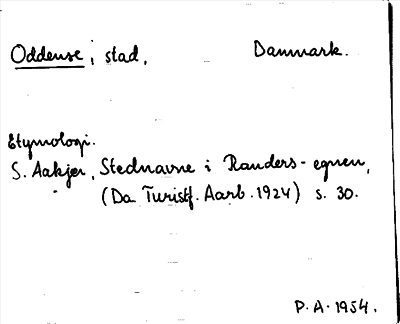 Oddense, stad. Danmark.
Etymologi.
S. Aakjer, Stednavne i Randers-egnen,
(Da Turistf. Aarb. 1924) s. 30.
P. A. 1954.